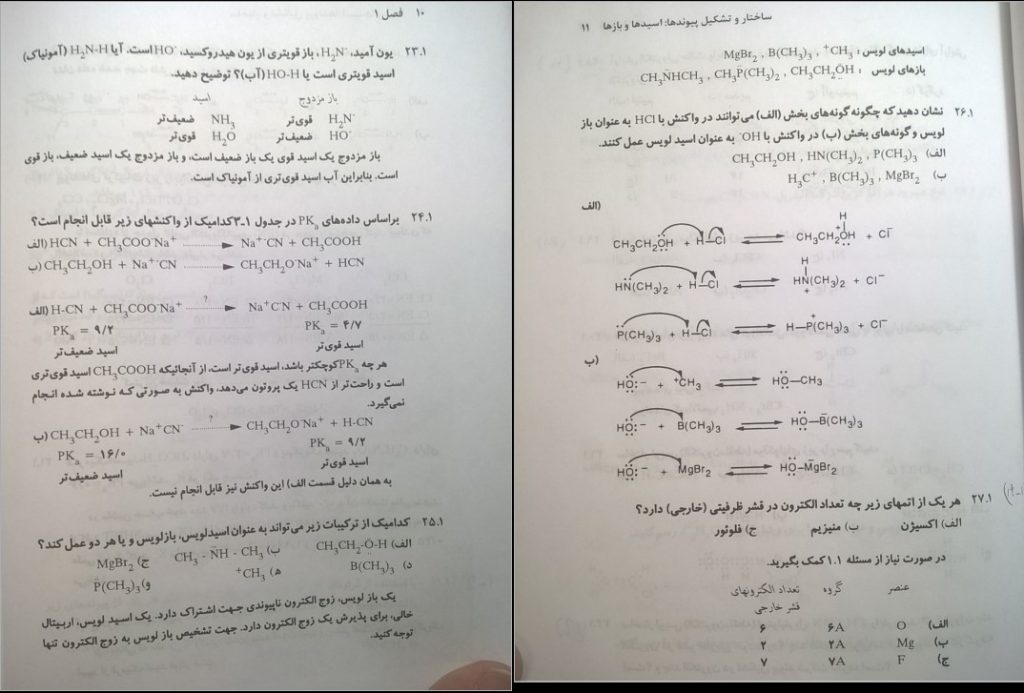 ۱۰ فصل ۱
۲۳.۱ یون آمید، H₂N⁻، باز قویتری از یون هیدروکسید، HO⁻ است. آیا H₂N-H (آمونیاک)
اسید قویتری است یا HO-H (آب)؟ توضیح دهید.
باز مزدوج اسید
H₂N⁻ قوی‌تر NH₃ ضعیف‌تر
HO⁻ ضعیف‌تر H₂O قوی‌تر
باز مزدوج یک اسید قوی یک باز ضعیف است، و باز مزدوج یک اسید ضعیف، باز قوی
است. بنابراین آب اسید قوی‌تری از آمونیاک است.
۲۴.۱ براساس داده‌های PKₐ در جدول ۱ـ۳ کدامیک از واکنشهای زیر قابل انجام است؟
الف) HCN + CH₃COO⁻Na⁺ → Na⁺⁻CN + CH₃COOH
ب) CH₃CH₂OH + Na⁺⁻CN → CH₃CH₂O⁻Na⁺ + HCN
الف) H-CN + CH₃COO⁻Na⁺ ?→ Na⁺C⁻N + CH₃COOH
PKₐ = ۹/۲ PKₐ = ۴/۷
اسید ضعیف‌تر اسید قوی‌تر
هر چه PKₐ کوچکتر باشد، اسید قوی‌تر است، از آنجائیکه CH₃COOH اسید قوی‌تری
است و راحت‌تر از HCN یک پروتون می‌دهد، واکنش به صورتی که نوشته شده انجام
نمی‌گیرد.
ب) CH₃CH₂OH + Na⁺CN⁻ ?→ CH₃CH₂O⁻Na⁺ + H-CN
PKₐ = ۱۶/۰ PKₐ = ۹/۲
اسید ضعیف‌تر اسید قوی‌تر
به همان دلیل قسمت الف) این واکنش نیز قابل انجام نیست.
۲۵.۱ کدامیک از ترکیبات زیر می‌تواند به عنوان اسیدلویس، بازلویس و یا هر دو عمل کند؟
الف) CH₃CH₂-Ö-H ب) CH₃ - N̈H - CH₃ ج) MgBr₂
د) B(CH₃)₃ ه) ⁺CH₃ و) P̈(CH₃)₃
یک باز لویس، زوج الکترون ناپیوندی جهت اشتراک دارد. یک اسید لویس، اربیتال
خالی، برای پذیرش یک زوج الکترون دارد. جهت تشخیص باز لویس به زوج الکترون تنها
توجه کنید.
ساختار و تشکیل پیوندها: اسیدها و بازها ۱۱
اسیدهای لویس : MgBr₂ , B(CH₃)₃ , ⁺CH₃
بازهای لویس : CH₃N̈HCH₃ , CH₃P̈(CH₃)₂ , CH₃CH₂ÖH
۲۶.۱ نشان دهید که چگونه گونه‌های بخش (الف) می‌توانند در واکنش با HCl به عنوان باز
لویس و گونه‌های بخش (ب) در واکنش با OH⁻ به عنوان اسید لویس عمل کنند.
الف) CH₃CH₂OH , HN(CH₃)₂ , P(CH₃)₃
ب) H₃C⁺ , B(CH₃)₃ , MgBr₂
الف)
H
CH₃CH₂ÖH + H—Cl ⇌ CH₃CH₂ÖH⁺ + Cl⁻
H
HN̈(CH₃)₂ + H—Cl ⇌ HN(CH₃)₂ + Cl⁻
+
P̈(CH₃)₃ + H—Cl ⇌ H—P⁺(CH₃)₃ + Cl⁻
ب)
HÖ:⁻ + ⁺CH₃ ⇌ HÖ—CH₃
HÖ:⁻ + B(CH₃)₃ ⇌ HÖ—B⁻(CH₃)₃
HÖ:⁻ + MgBr₂ ⇌ HÖ—M⁻gBr₂
۲۷.۱ هر یک از اتمهای زیر چه تعداد الکترون در قشر ظرفیتی (خارجی) دارد؟
الف) اکسیژن ب) منیزیم ج) فلوئور
در صورت نیاز از مسئله ۱.۱ کمک بگیرید.
عنصر گروه تعداد الکترونهای
قشر خارجی
الف) O ۶A ۶
ب) Mg ۲A ۲
ج) F ۷A ۷